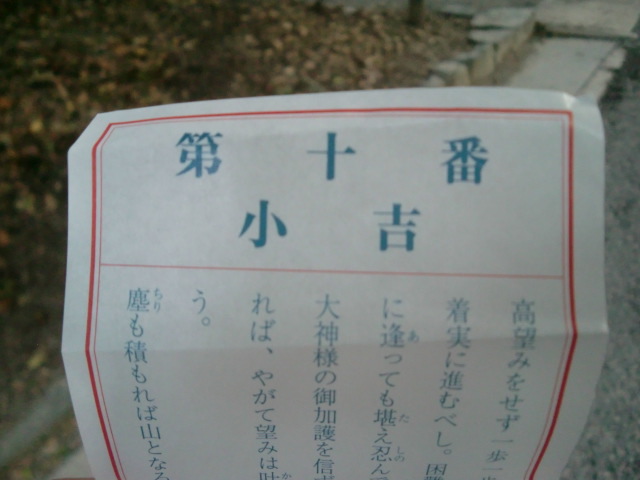 第十番
小吉
高望みをせず一歩一歩
着実に進むべし。困難
に逢っても堪え忍んで
大神様の御加護を信
れば、やがて望みは叶
う。
塵も積もれば山となる